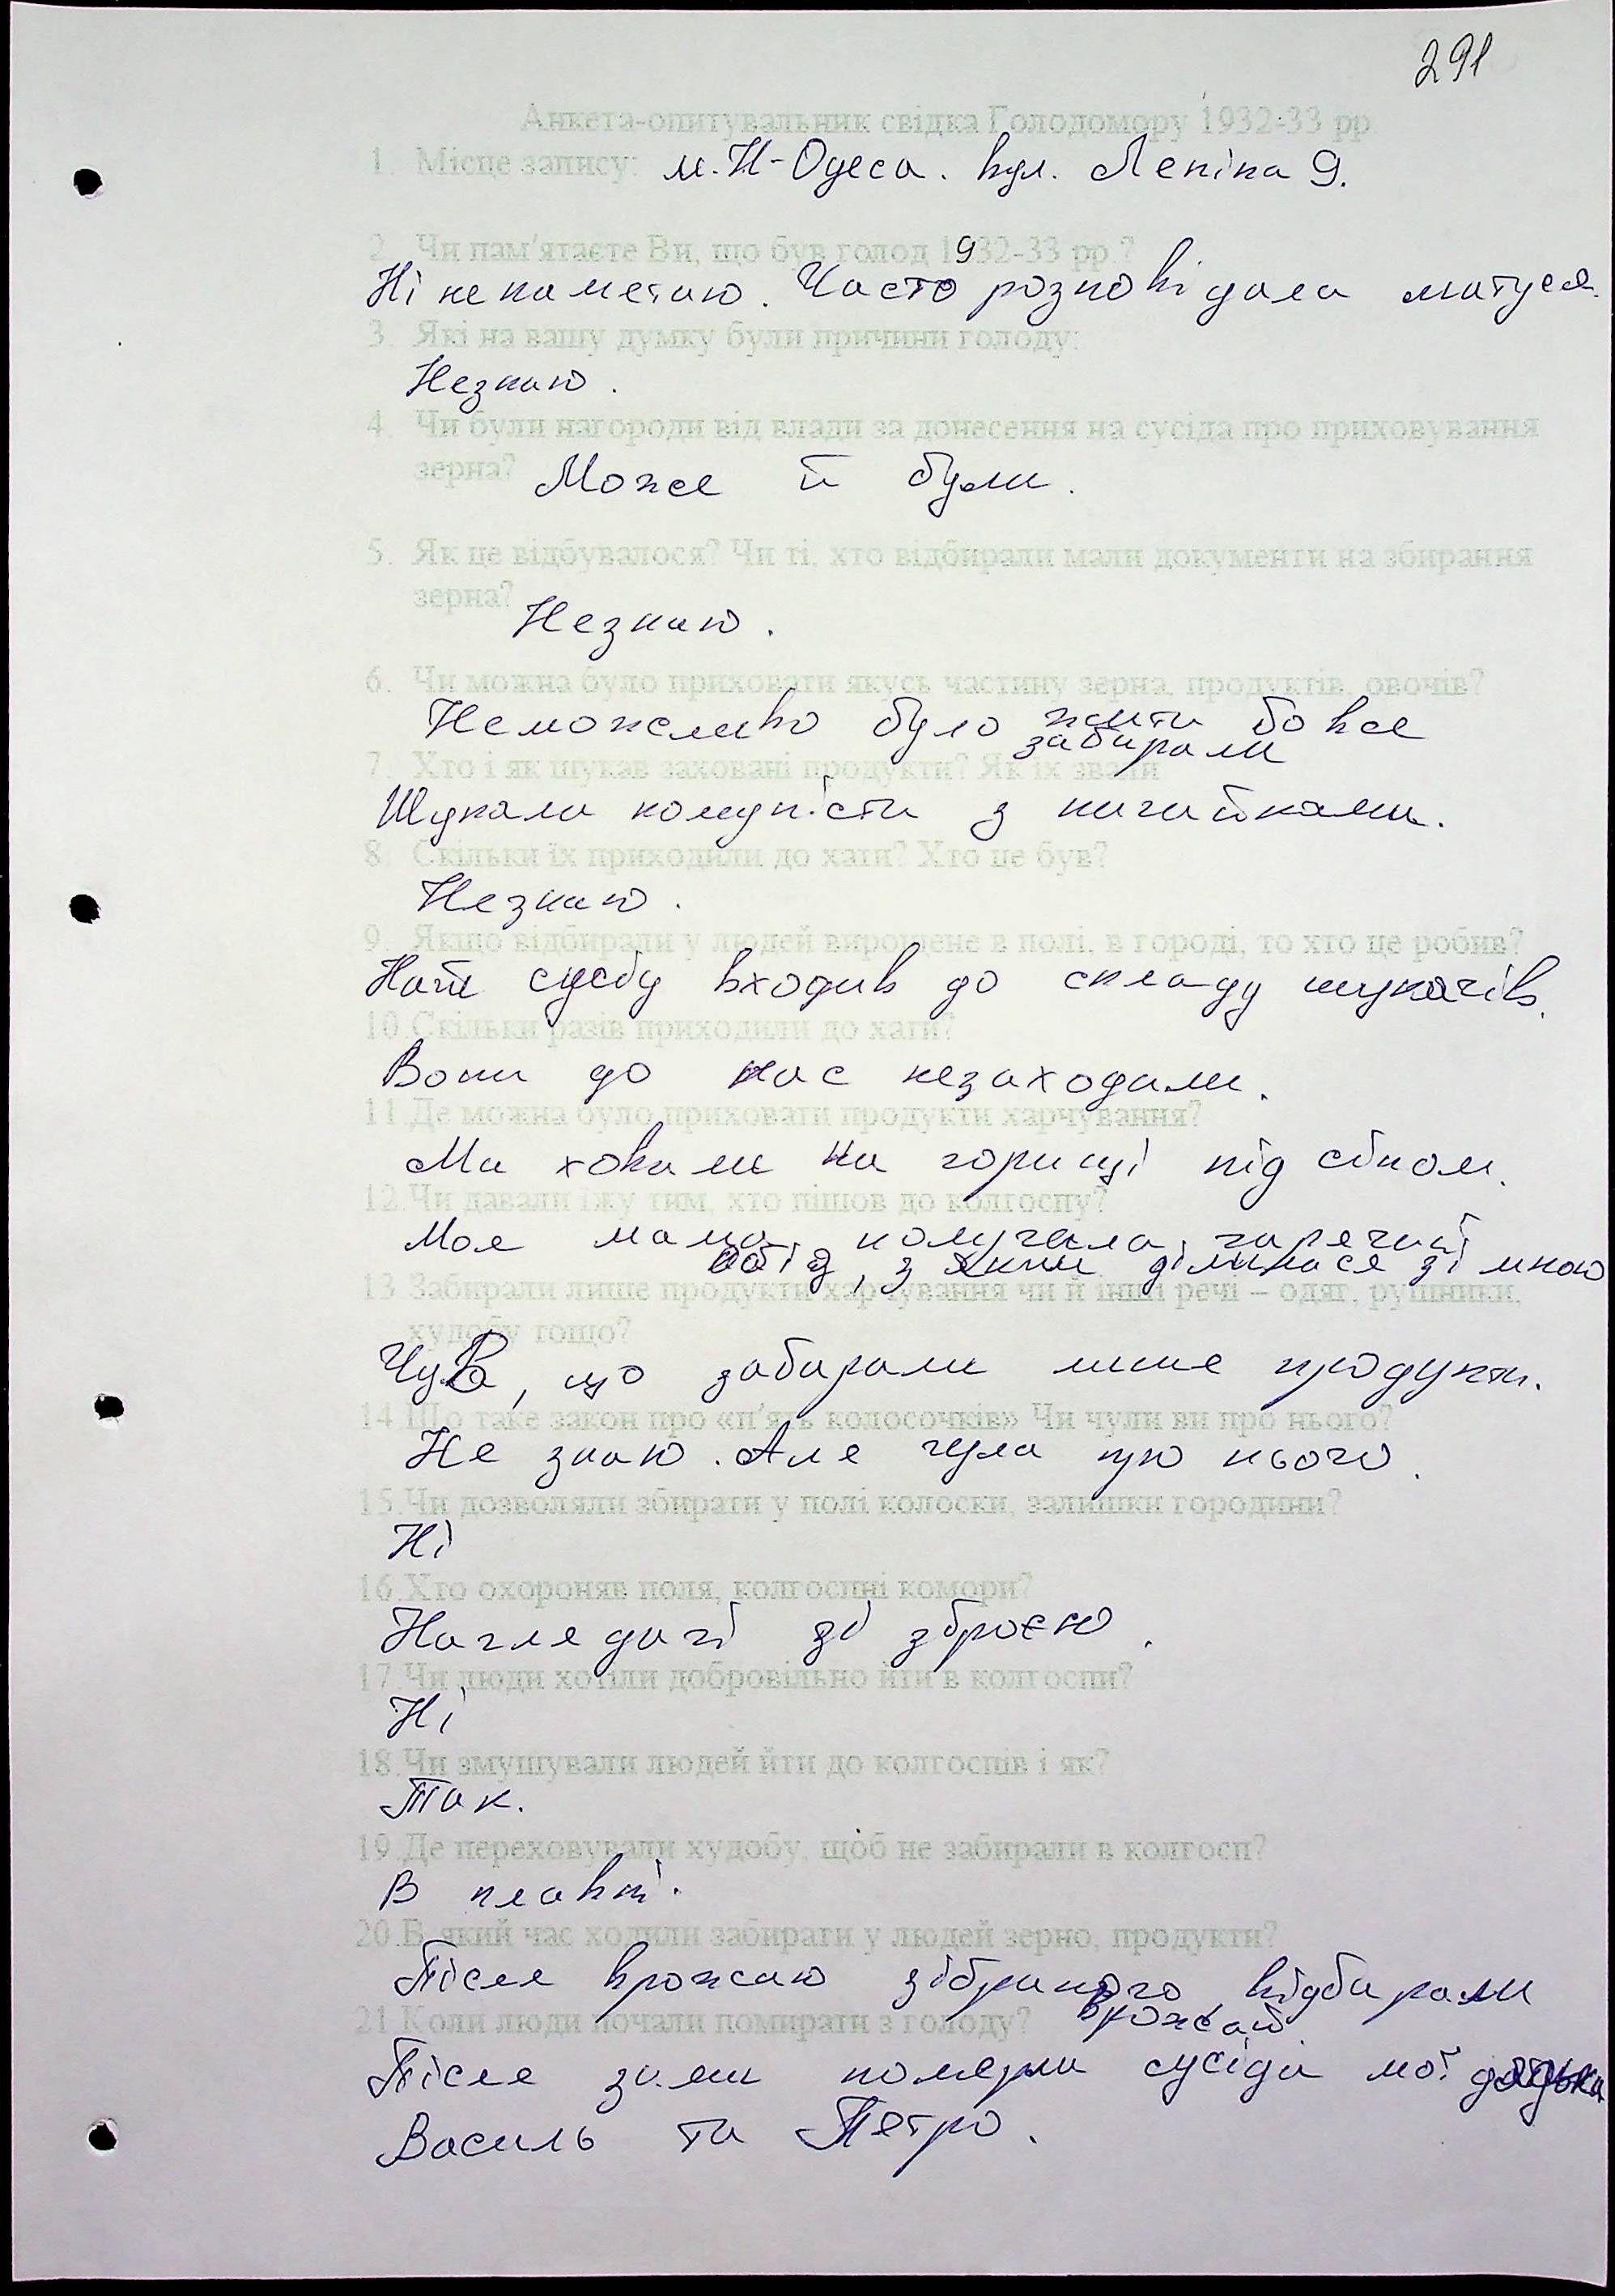 291
Анкета-опитувальник свідка Голодомору 1932-33 рр.
1. Місце запису: м. Н-Одеса. вул. Леніна 9.
2. Чи пам'ятаєте Ви, що був голод 1932-33 рр.?
Ні непаметаю. Часто розповідала матуся.
3. Які на вашу думку були причини голоду:
Незнаю.
4. Чи були нагороди від влади за донесення на сусіда про приховування
зерна? Може й були.
5. Як це відбувалося? Чи ті, хто відбирали мали документи на збирання
зерна?
Незнаю.
6. Чи можна було приховати якусь частину зерна, продуктів, овочів?
Неможливо було жити бо все
забирали
7. Хто і як шукав заховані продукти? Як їх звали
Шукали комуністи з нагайками.
8. Скільки їх приходили до хати? Хто це був?
Незнаю.
9. Якщо відбирали у людей вирощене в полі, в городі, то хто це робив?
Наш входив до складу шукачів.
10.Скільки разів приходили до хати?
Вони до нас незаходили.
11.Де можна було приховати продукти харчування?
Ми ховали на горищі під сіном.
12.Чи давали їжу тим, хто пішов до колгоспу?
Моя мама получала гарячий
обід, з яким ділилася зі мною
13.Забирали лише продукти харчування чи й інші речі – одяг, рушники,
худобу тощо?
Чув, що забирали лише продукти.
14.Що таке закон про «п'ять колосочків» Чи чули ви про нього?
Не знаю. Але чула про нього.
15.Чи дозволяли збирати у полі колоски, залишки городини?
Ні
16.Хто охороняв поля, колгоспні комори?
Наглядачі зі зброєю.
17.Чи люди хотіли добровільно йти в колгоспи?
Ні
18.Чи змушували людей йти до колгоспів і як?
Так.
19.Де переховували худобу, щоб не забирали в колгосп?
В плавні.
20.В який час ходили забирати у людей зерно, продукти?
Після врожаю зібраного відбирали
врожай.
21.Коли люди почали помирати з голоду?
Після зими померли сусіди мої дядька
Василь та Петро.